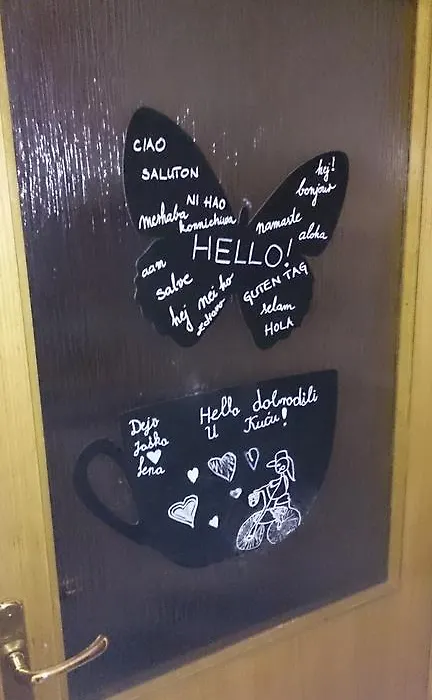 CIAO
SALUTON
NI HAO
merhaba
konnichiwa
hej!
bonjour
namaste
aloha
HELLO!
aan
salve
hej
nei ho
zdravo
GUTEN TAG
selam
HOLA
Dejo
Jaška
Lena
Hello dobrodošli
U Kuću!